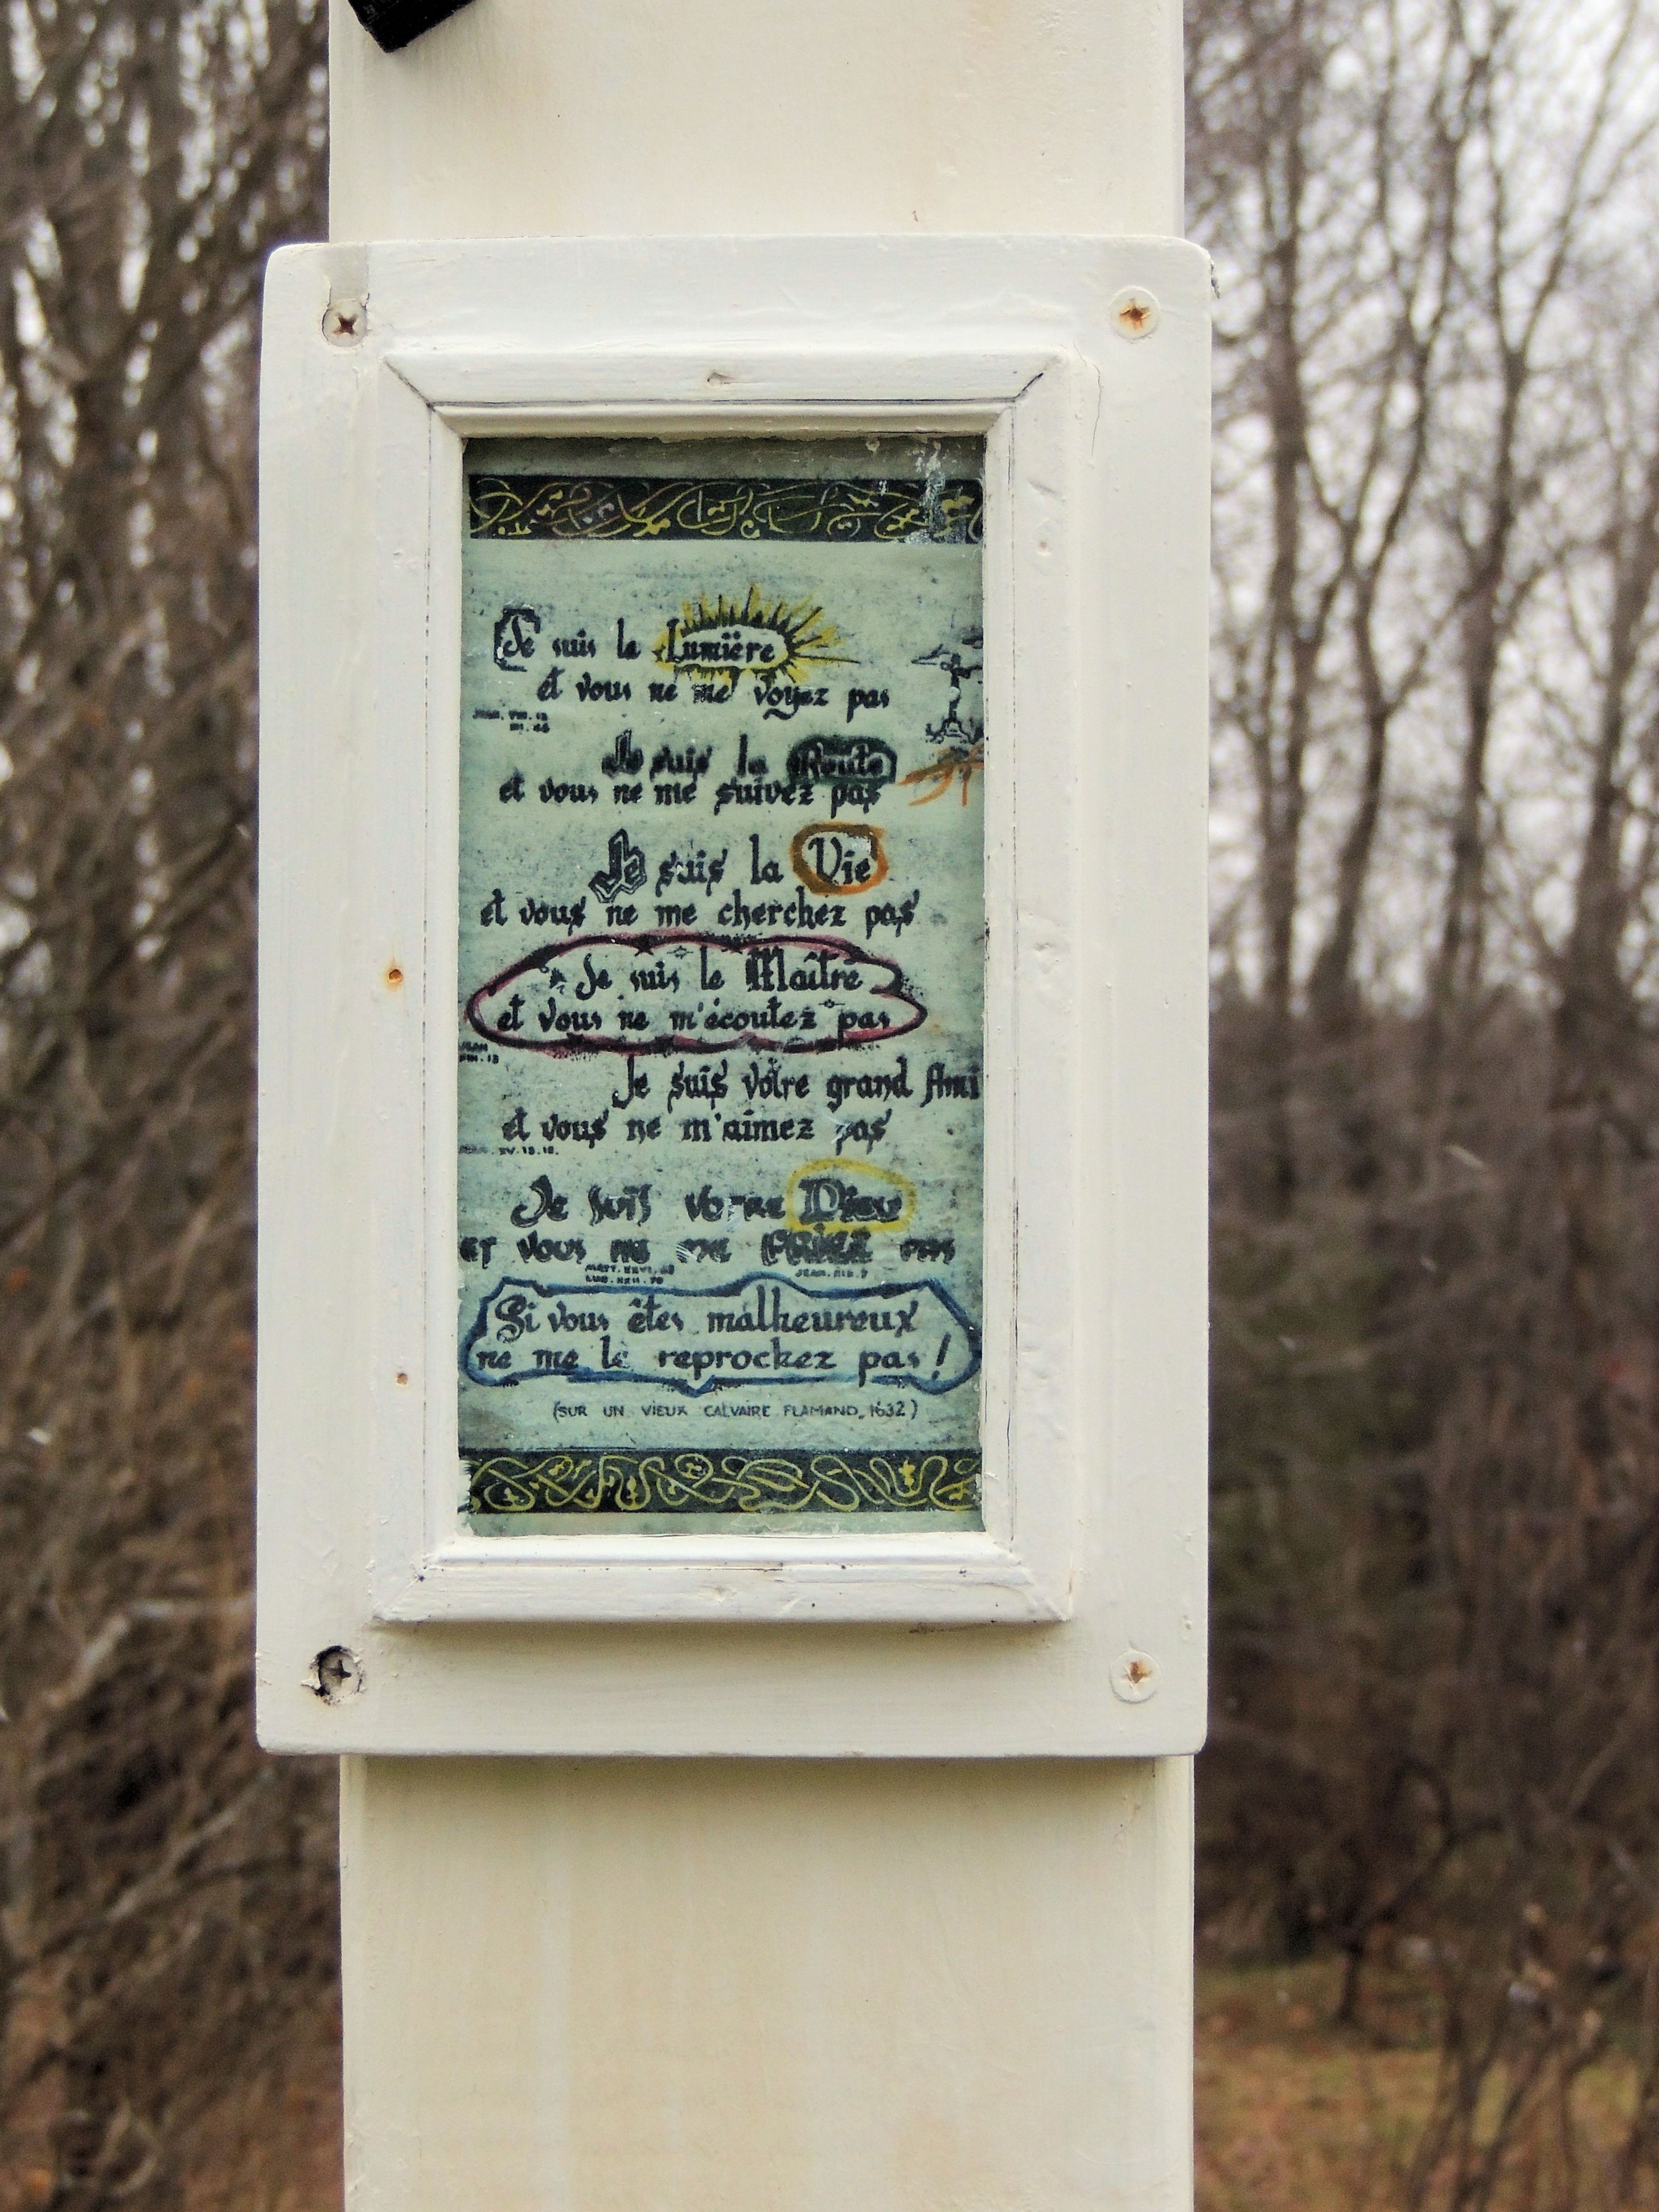 Je suis la Lumière
et vous ne me voyez pas
JEAN. VIII. 12
Je suis la Route
et vous ne me suivez pas
Je suis la Vie
et vous ne me cherchez pas
Je suis le Maître
et vous ne m'écoutez pas
JEAN
XIII. 13
Je suis votre grand Ami
et vous ne m'aimez pas
JEAN. XV. 15.
Je suis votre Dieu
et vous ne me priez pas
LUC. XXII. 70
JEAN. XIX. 7
Si vous êtes malheureux
ne me le reprochez pas !
(SUR UN VIEUX CALVAIRE FLAMAND, 1632)